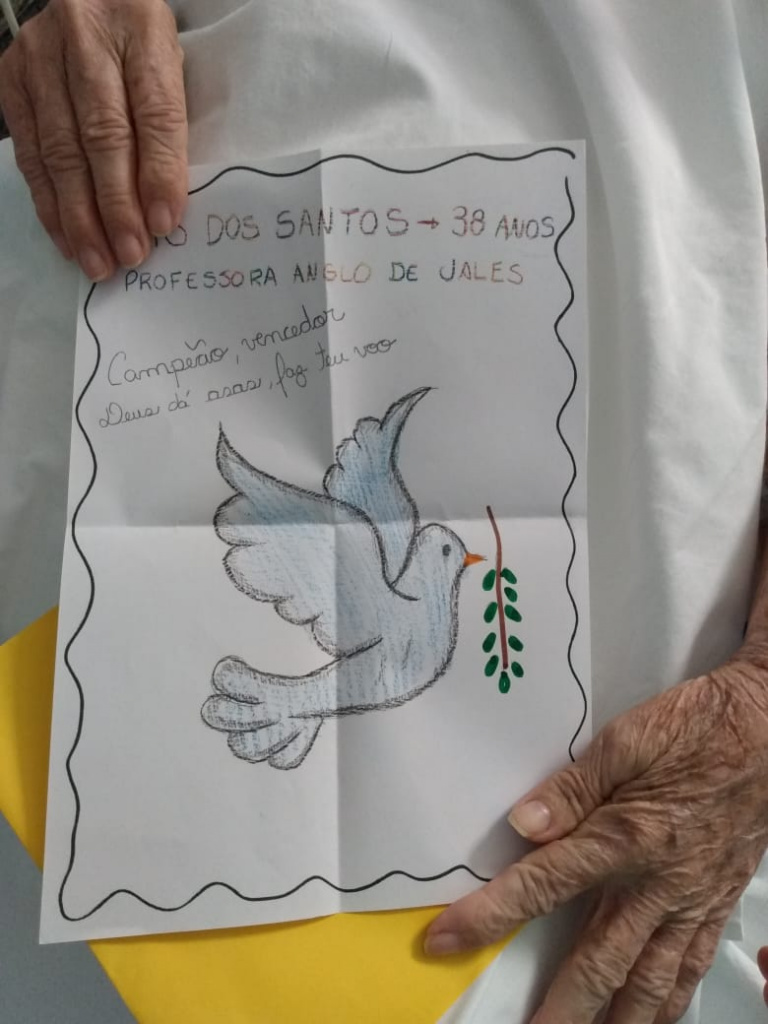 DOS SANTOS → 38 ANOS
PROFESSORA ANGLO DE JALES
Campeão, vencedor
Deus dá asas, faz teu voo